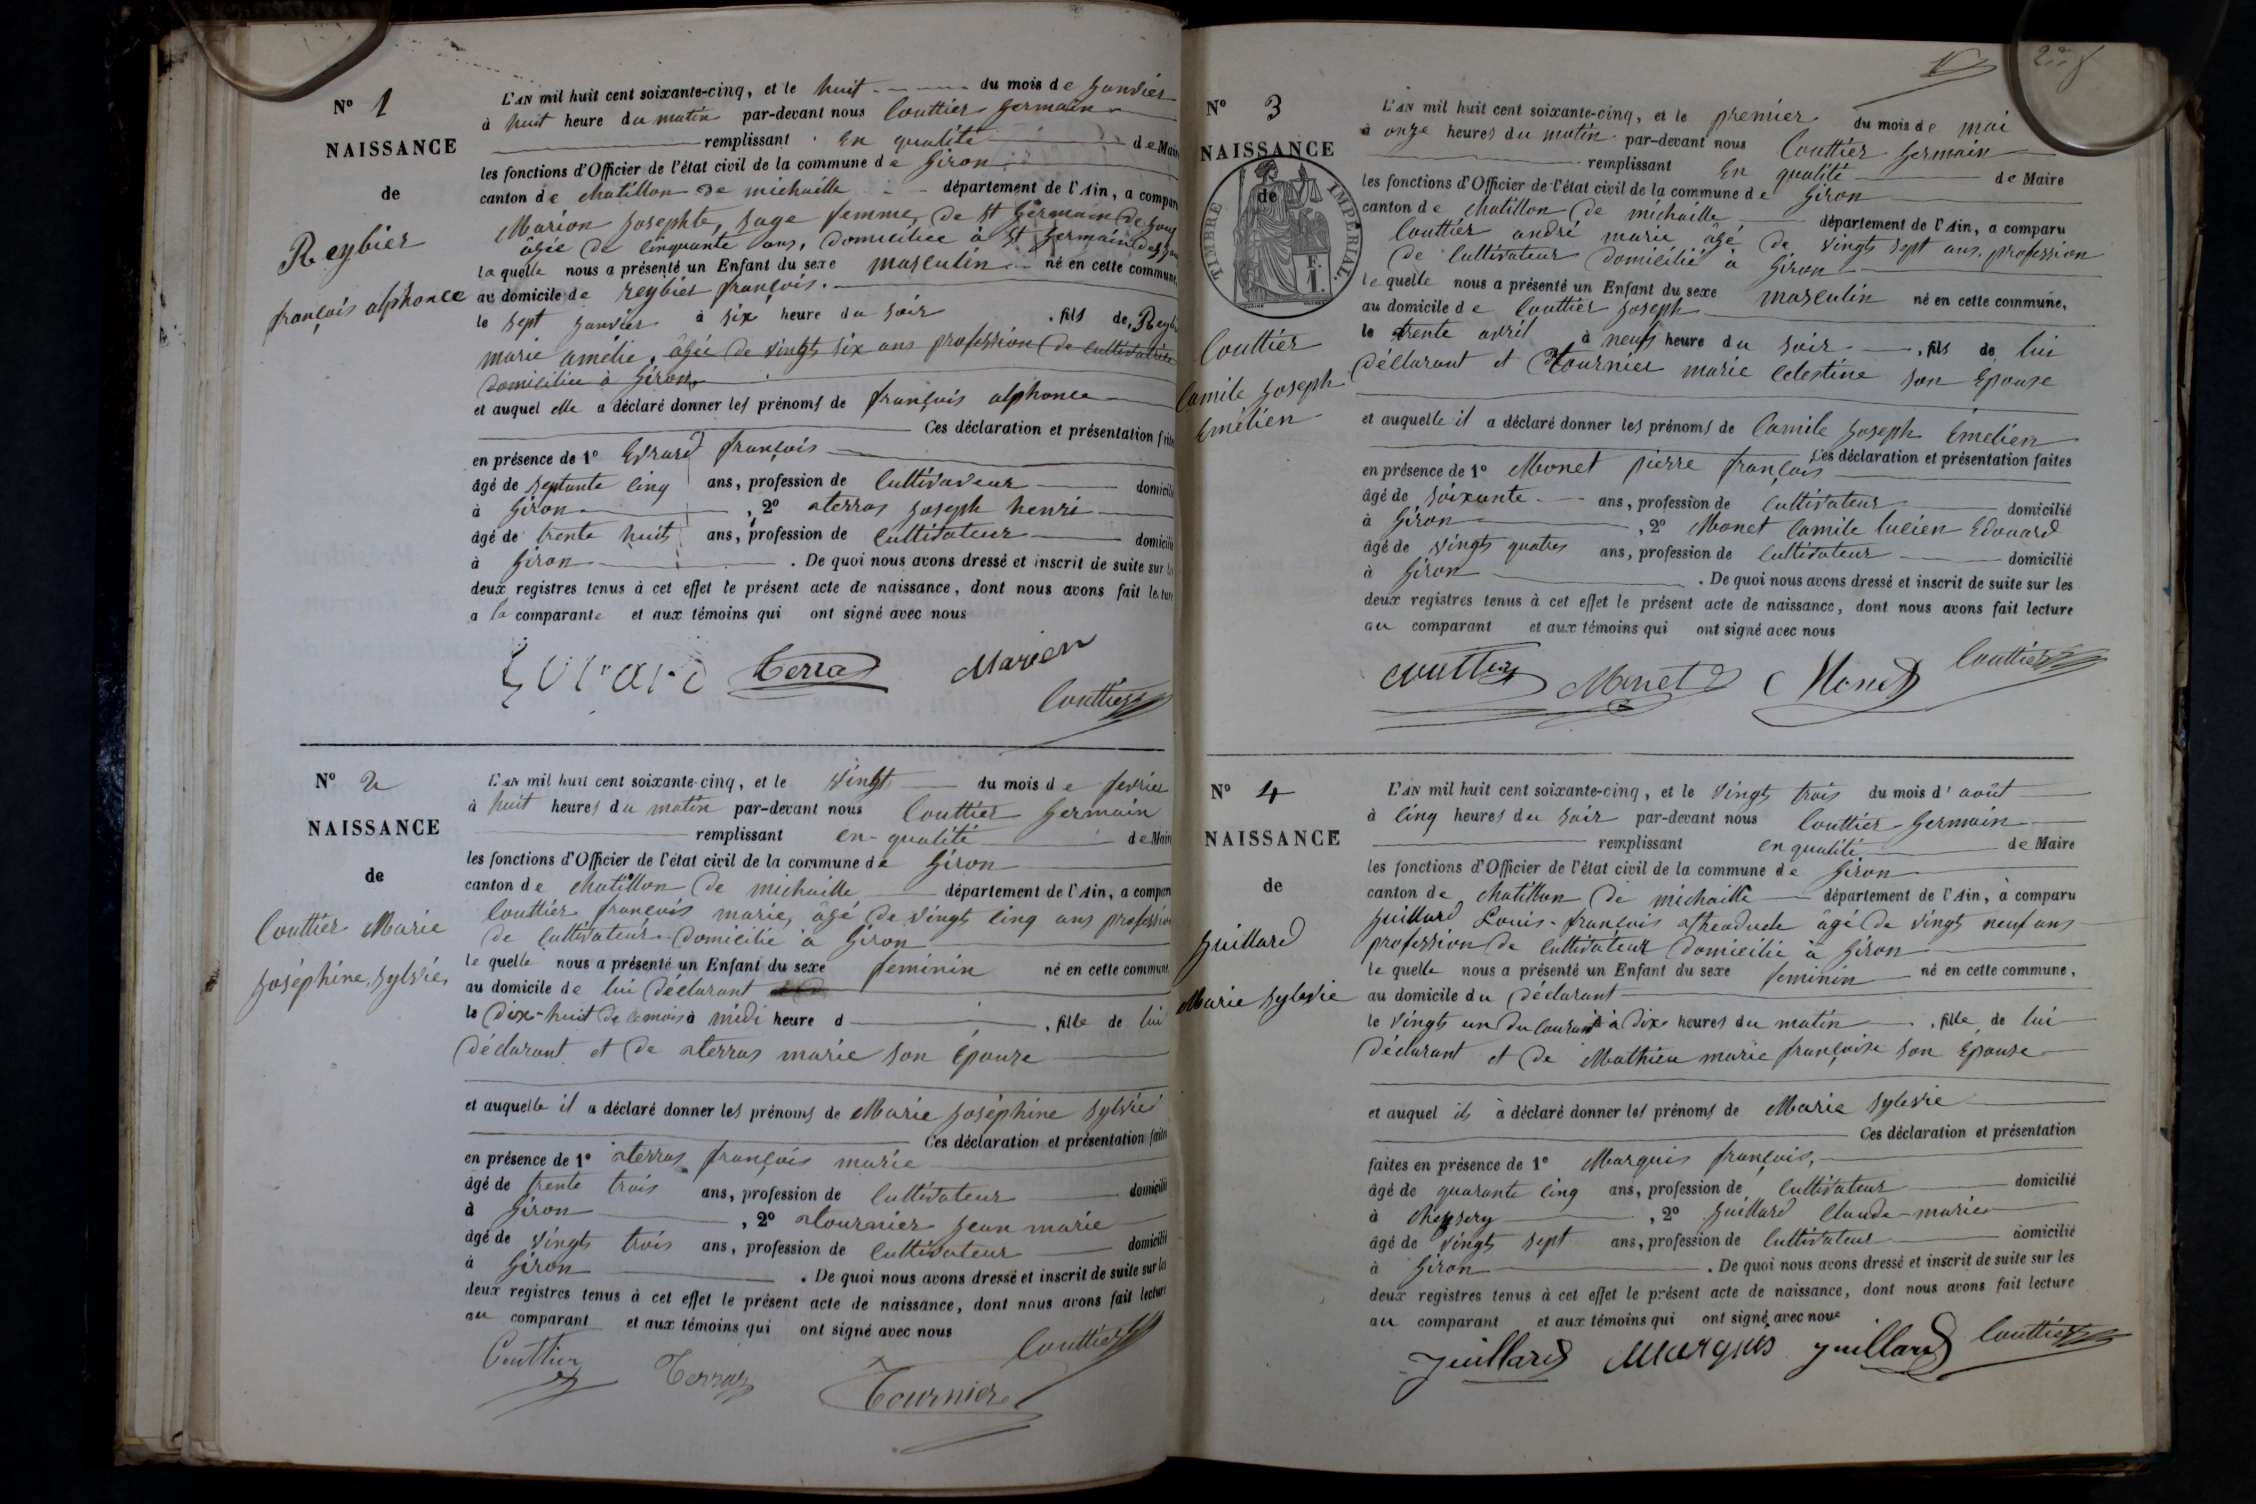 N° 1
NAISSANCE
de
Reybier
françois alphonce
L'AN mil huit cent soixante-cinq, et le huit du mois de janvier
à huit heure du matin par-devant nous Couttier germain
remplissant En qualité de Mai
les fonctions d'Officier de l'état civil de la commune de Giron
canton de chatillon de michaille département de l'Ain, a compar
Marion josephte, sage femme, de st Germain de joux
âgée de cinquante ans, domiciliée à st germain de joux
la quelle nous a présenté un Enfant du sexe masculin né en cette commune,
au domicile de reybier françois.
le sept janvier à six heure du soir . fils de, Reybi
marie amélie, âgée de vingts six ans profession de cultivatrice
domiciliée à Giron,
et auquel elle a déclaré donner les prénoms de françois alphonce
Ces déclaration et présentation faites
en présence de 1° Evrard françois
âgé de septante cinq ans, profession de Cultivateur domicilié
à Giron , 2° terras joseph henri
âgé de trente huit ans, profession de Cultivateur domicilié
à Giron . De quoi nous avons dressé et inscrit de suite sur les
deux registres tenus à cet effet le présent acte de naissance, dont nous avons fait lecture
a la comparante et aux témoins qui ont signé avec nous
Evrard Terras Marion
Couttier
N° 2
NAISSANCE
de
Couttier Marie
joséphine, sylvie,
L'AN mil huit cent soixante-cinq, et le vingt du mois de fevrier
à huit heures du matin par-devant nous Couttier germain
remplissant en qualité de Maire
les fonctions d'Officier de l'état civil de la commune de Giron
canton de chatillon de michaille département de l'Ain, a comparu
Couttier françois marie, âgé de vingt cinq ans profession
de cultivateur domicilié à Giron
le quelle nous a présenté un Enfant du sexe feminin né en cette commune,
au domicile de lui déclarant
le Dix-huit de ce mois à midi heure d , fille de lui
déclarant et de terras marie son épouse
et auquelle il a déclaré donner les prénoms de Marie joséphine sylvie
Ces déclaration et présentation faites
en présence de 1° terras françois marie
âgé de trente trois ans, profession de Cultivateur domicilié
à Giron , 2° tournier jean marie
âgé de vingts trois ans, profession de Cultivateur domicilié
à Giron . De quoi nous avons dressé et inscrit de suite sur les
deux registres tenus à cet effet le présent acte de naissance, dont nous avons fait lecture
au comparant et aux témoins qui ont signé avec nous
Couttier Terras Tournier Couttier
N° 3
NAISSANCE
de
TIMBRE IMPÉRIAL
Couttier
Camile joseph
Emélien
L'AN mil huit cent soixante-cinq, et le premier du mois de mai
à onze heures du matin par-devant nous Couttier germain
remplissant En qualité de Maire
les fonctions d'Officier de l'état civil de la commune de Giron
canton de chatillon de michaille département de l'Ain, a comparu
Couttier andré marie âgé de vingts sept ans, profession
de Cultivateur domicilié à Giron
le quelle nous a présenté un Enfant du sexe masculin né en cette commune,
au domicile de Couttier joseph
le trente avril à neufs heure du soir , fils de lui
déclarant et tournier marie celestine son Epouse
et auquelle il a déclaré donner les prénoms de Camile joseph Emélien
Ces déclaration et présentation faites
en présence de 1° Monet pierre françois
âgé de soixante ans, profession de cultivateur domicilié
à Giron , 2° Monet Camile lucien Edouard
âgé de vingts quatres ans, profession de Cultivateur domicilié
à Giron . De quoi nous avons dressé et inscrit de suite sur les
deux registres tenus à cet effet le présent acte de naissance, dont nous avons fait lecture
au comparant et aux témoins qui ont signé avec nous
Couttier Monet Monet Couttier
N° 4
NAISSANCE
de
juillard
Marie sylvie
L'AN mil huit cent soixante-cinq, et le vingts trois du mois d' août
à cinq heures du soir par-devant nous Couttier Germain
remplissant en qualité de Maire
les fonctions d'Officier de l'état civil de la commune de Giron
canton de chatillon de michaille département de l'Ain, a comparu
juillard Louis-françois theodule âgé de vingts neuf ans
profession de cultivateur domicilié à Giron
le quelle nous a présenté un Enfant du sexe feminin né en cette commune,
au domicile du déclarant
le vingts un du courant à dix heures du matin , fille de lui
déclarant et de Mathieu marie françoise son Epouse
et auquel il a déclaré donner les prénoms de Marie sylvie
Ces déclaration et présentation
faites en présence de 1° Marquis françois,
âgé de quarante cinq ans, profession de Cultivateur domicilié
à chezery , 2° juillard Claude-marie
âgé de vingts sept ans, profession de Cultivateur domicilié
à Giron . De quoi nous avons dressé et inscrit de suite sur les
deux registres tenus à cet effet le présent acte de naissance, dont nous avons fait lecture
au comparant et aux témoins qui ont signé avec nous
juillard Marquis juillard Couttier